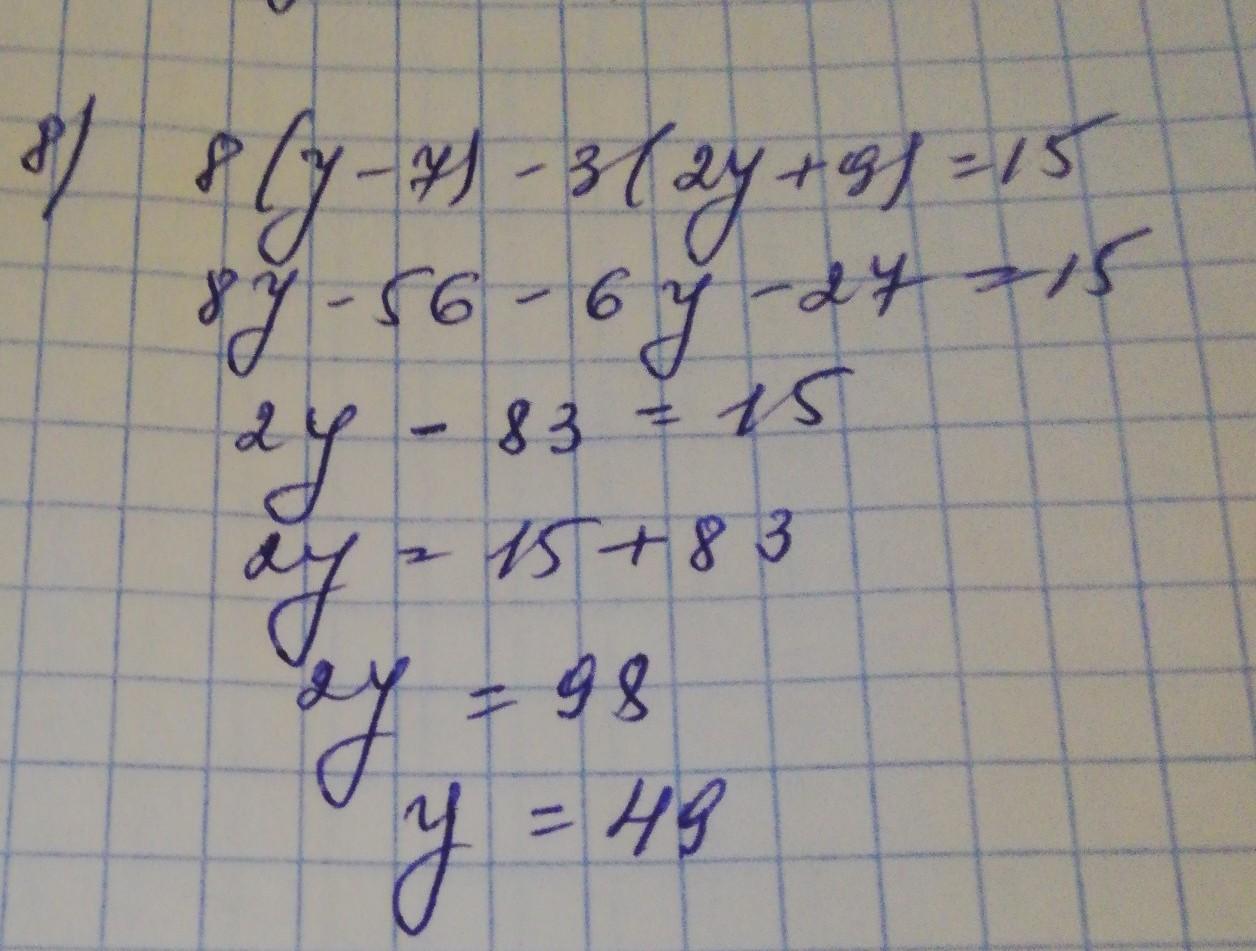 8) 8(y-7)-3(2y+9)=15
8y-56-6y-27=15
2y-83=15
2y=15+83
2y=98
y=49